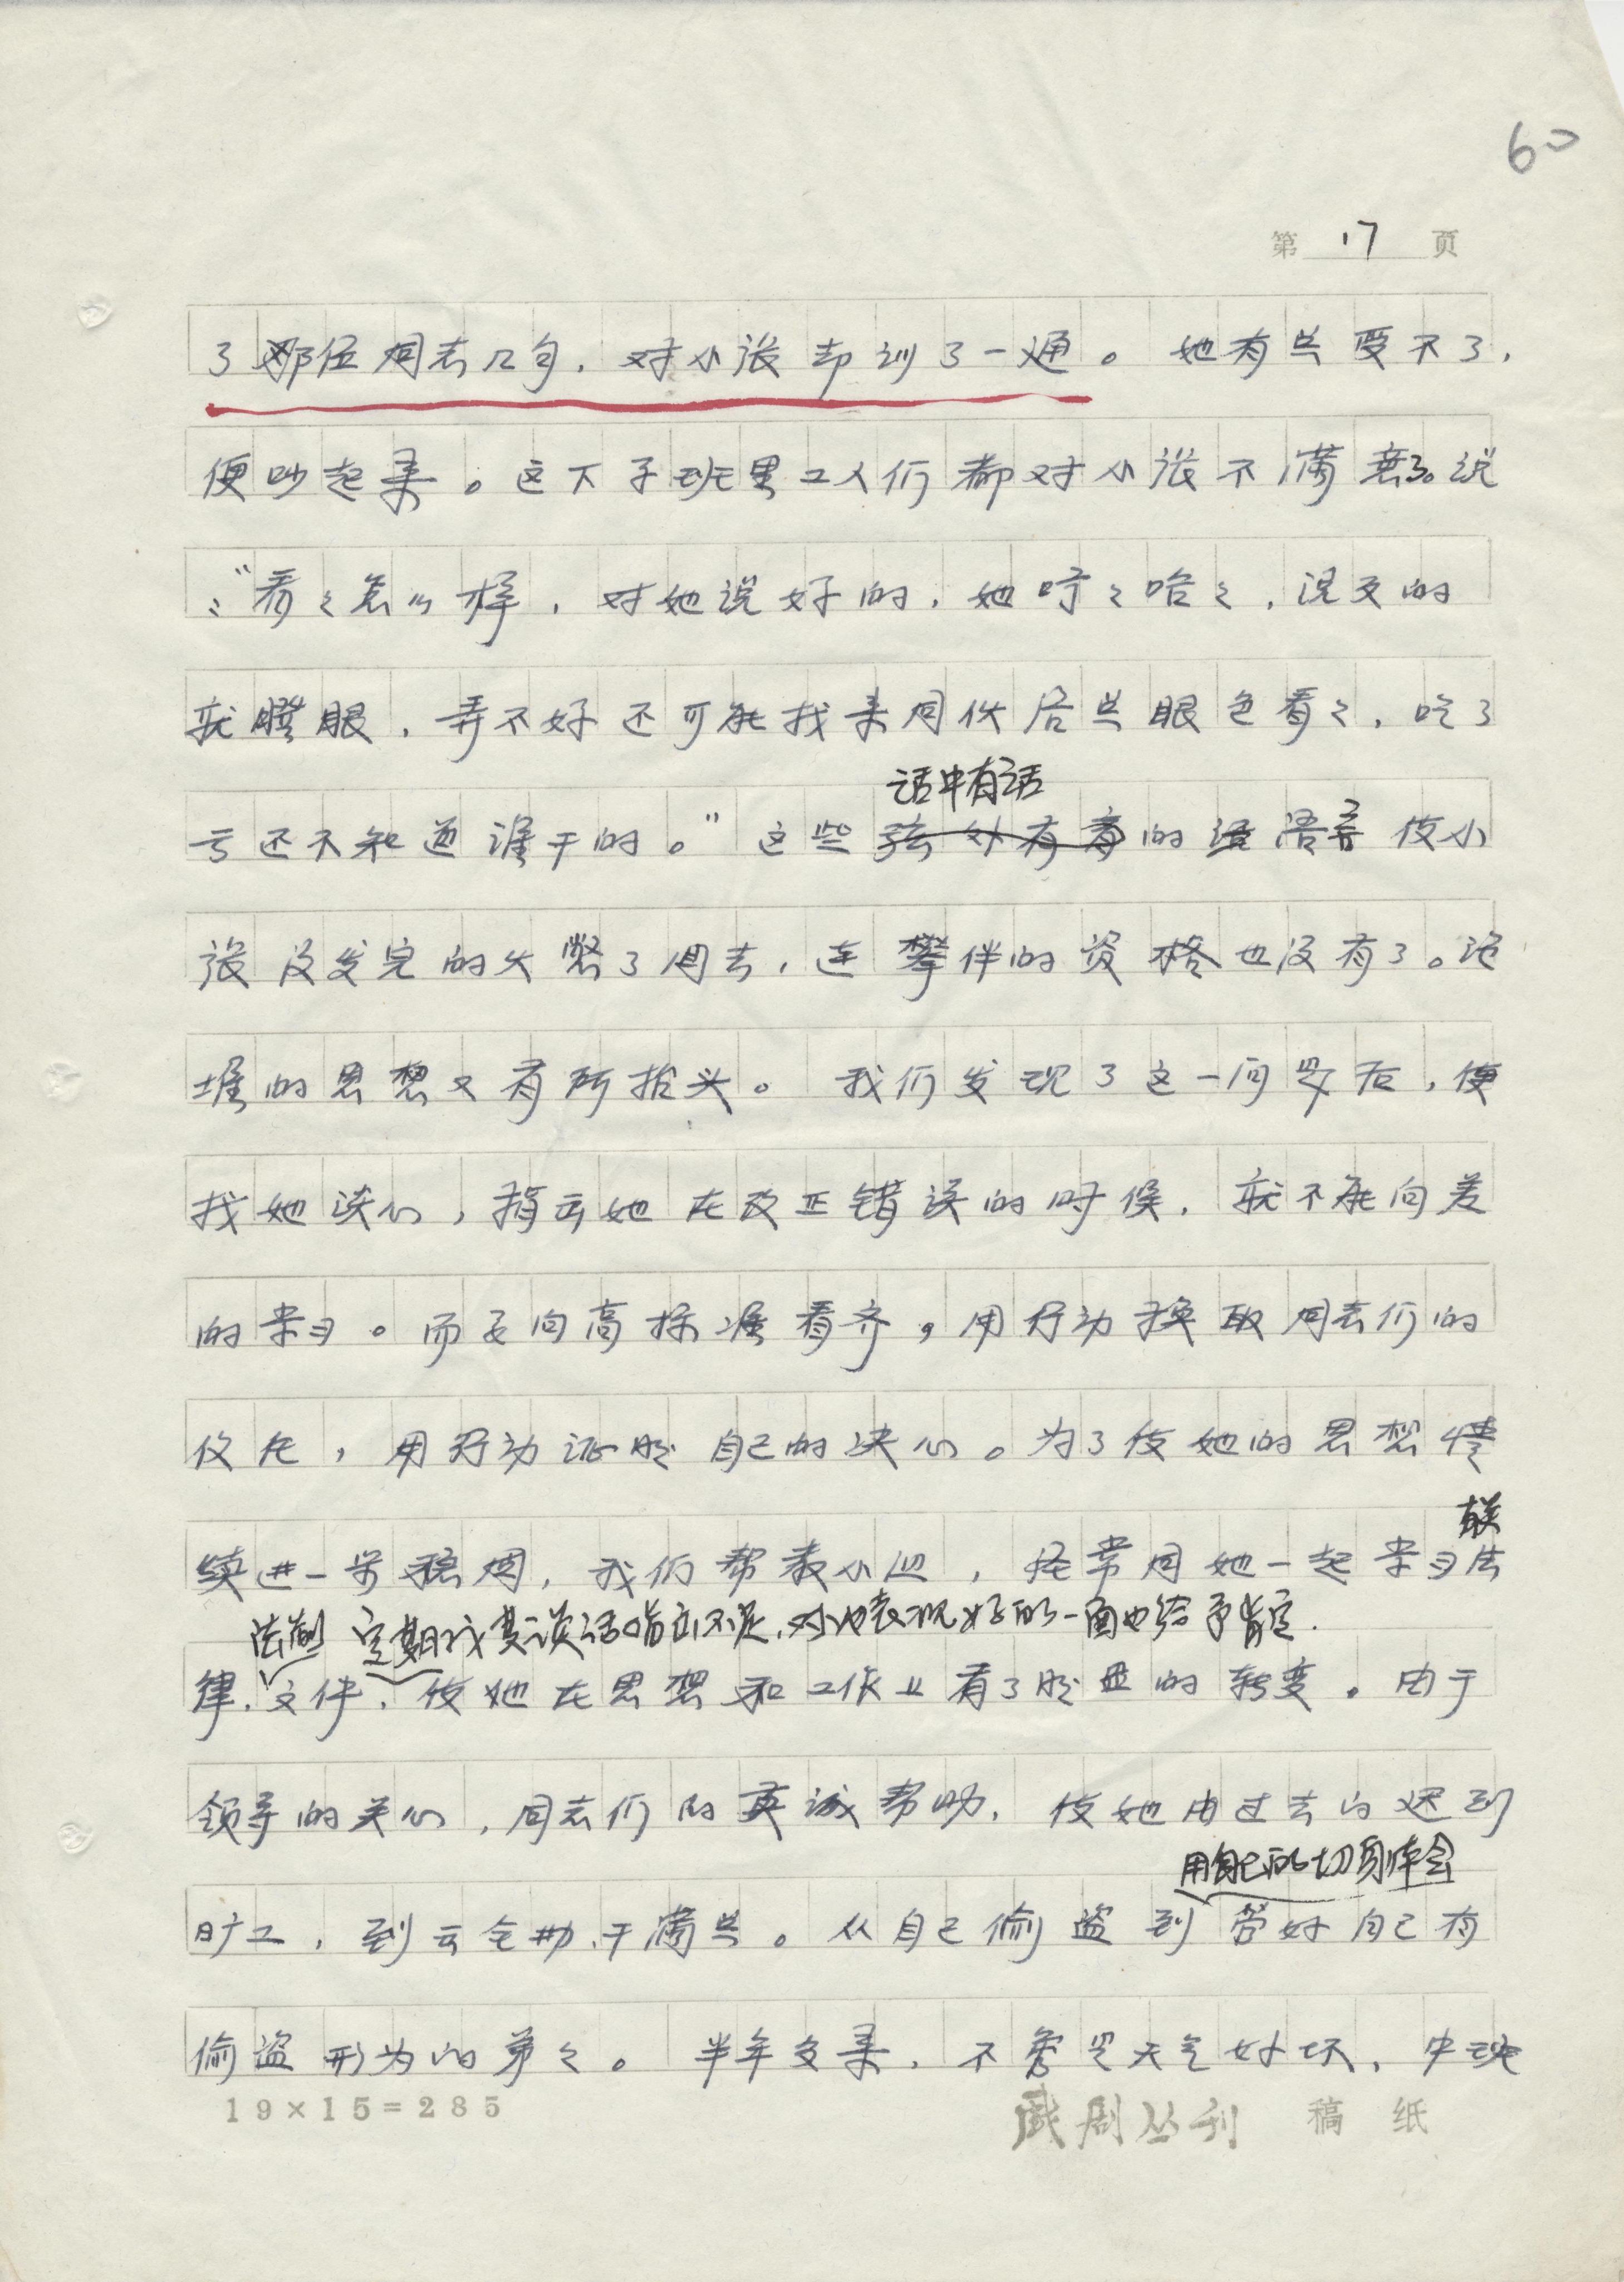 60
第 17 页
了那位同志几句，对小张却训了一通。她有些受不了，
便吵起来。这下子班里工人们都对小张不满意了。说
：“看々怎么样，对她说好的，她哼々哈々，说歹的
就瞪眼，弄不好还可能找来同伙给些眼色看々，吃了
话中有话
亏还不知道谁干的。”这些弦外有音的语言使小
张没发完的火憋了回去，连攀伴的资格也没有了。
的思想又有所抬头。我们发现了这一问题后，便
找她谈心，指出她在改正错误的时候，就不能向差
的学习。而要向高标准看齐，用行动换取同志们的
信任，用行动证明自己的决心。为了使她的思想情
有关
绪进一步稳固，我们帮教小组，经常同她一起学习法
法制 定期找其谈话指出不足，对她表现好的一面也给予肯定.
律.文件，使她在思想和工作上有了明显的转变。由于
领导的关心，同志们的真诚帮助，使她由过去的迟到
用自己的切身体会
旷工，到出全勤干满点。从自己偷盗到管好自己有
偷盗形为的弟々。半年多来，不管是天气好坏，中班
19×15=285
戏剧丛刊 稿纸